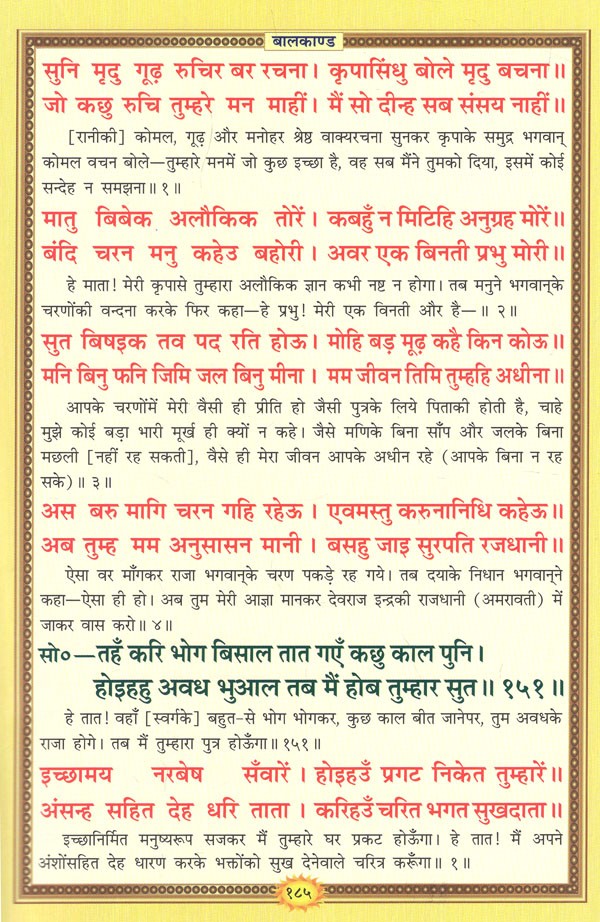 बालकाण्ड
सुनि मृदु गूढ़ रुचिर बर रचना। कृपासिंधु बोले मृदु बचना॥
जो कछु रुचि तुम्हरे मन माहीं। मैं सो दीन्ह सब संसय नाहीं॥
[रानीकी] कोमल, गूढ़ और मनोहर श्रेष्ठ वाक्यरचना सुनकर कृपाके समुद्र भगवान्
कोमल वचन बोले—तुम्हारे मनमें जो कुछ इच्छा है, वह सब मैंने तुमको दिया, इसमें कोई
सन्देह न समझना॥ १॥
मातु बिबेक अलौकिक तोरें। कबहुँ न मिटिहि अनुग्रह मोरें॥
बंदि चरन मनु कहेउ बहोरी। अवर एक बिनती प्रभु मोरी॥
हे माता! मेरी कृपासे तुम्हारा अलौकिक ज्ञान कभी नष्ट न होगा। तब मनुने भगवान्के
चरणोंकी वन्दना करके फिर कहा—हे प्रभु! मेरी एक विनती और है—॥ २॥
सुत बिषइक तव पद रति होऊ। मोहि बड़ मूढ़ कहै किन कोऊ॥
मनि बिनु फनि जिमि जल बिनु मीना। मम जीवन तिमि तुम्हहि अधीना॥
आपके चरणोंमें मेरी वैसी ही प्रीति हो जैसी पुत्रके लिये पिताकी होती है, चाहे
मुझे कोई बड़ा भारी मूर्ख ही क्यों न कहे। जैसे मणिके बिना साँप और जलके बिना
मछली [नहीं रह सकती], वैसे ही मेरा जीवन आपके अधीन रहे (आपके बिना न रह
सके)॥ ३॥
अस बरु मागि चरन गहि रहेऊ। एवमस्तु करुनानिधि कहेऊ॥
अब तुम्ह मम अनुसासन मानी। बसहु जाइ सुरपति रजधानी॥
ऐसा वर माँगकर राजा भगवान्के चरण पकड़े रह गये। तब दयाके निधान भगवान्ने
कहा—ऐसा ही हो। अब तुम मेरी आज्ञा मानकर देवराज इन्द्रकी राजधानी (अमरावती) में
जाकर वास करो॥ ४॥
सो०—तहँ करि भोग बिसाल तात गएँ कछु काल पुनि।
होइहहु अवध भुआल तब मैं होब तुम्हार सुत॥ १५१॥
हे तात! वहाँ [स्वर्गके] बहुत-से भोग भोगकर, कुछ काल बीत जानेपर, तुम अवधके
राजा होगे। तब मैं तुम्हारा पुत्र होऊँगा॥ १५१॥
इच्छामय नरबेष सँवारें। होइहउँ प्रगट निकेत तुम्हारें॥
अंसन्ह सहित देह धरि ताता। करिहउँ चरित भगत सुखदाता॥
इच्छानिर्मित मनुष्यरूप सजकर मैं तुम्हारे घर प्रकट होऊँगा। हे तात! मैं अपने
अंशोंसहित देह धारण करके भक्तोंको सुख देनेवाले चरित्र करूँगा॥ १॥
१८५